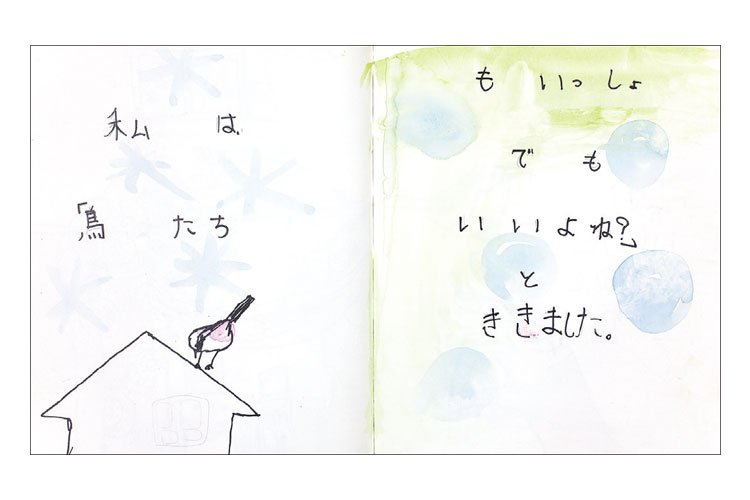 私は
「鳥たち
もいっしょ
でも
いいよね?」
と
ききました。